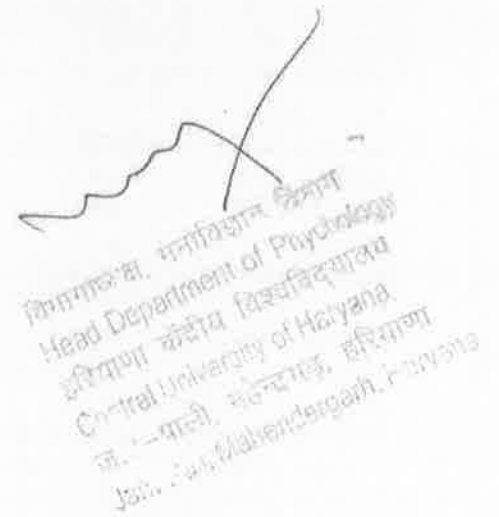 विभागाध्यक्ष, मनोविज्ञान विभाग
Head Department of Psychology
हरियाणा केंद्रीय विश्वविद्यालय
Central University of Haryana
महेन्द्रगढ़, हरियाणा
Mahendergarh, Haryana